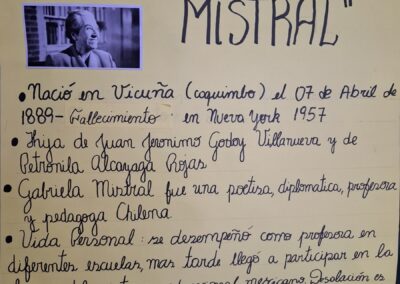 MISTRAL"
• Nació en Vicuña (coquimbo) el 07 de Abril de
1889- Fallecimiento en Nueva York 1957
• Hija de Juan Jeronimo Godoy Villanueva y de
Petronila Alcayaga Rojas
• Gabriela Mistral fue una poetisa, diplomatica, profesora
y pedagoga Chilena.
• Vida Personal: se desempeñó como profesora en
diferentes escuelas, mas tarde llegó a participar en la
mexicano. Desolación es